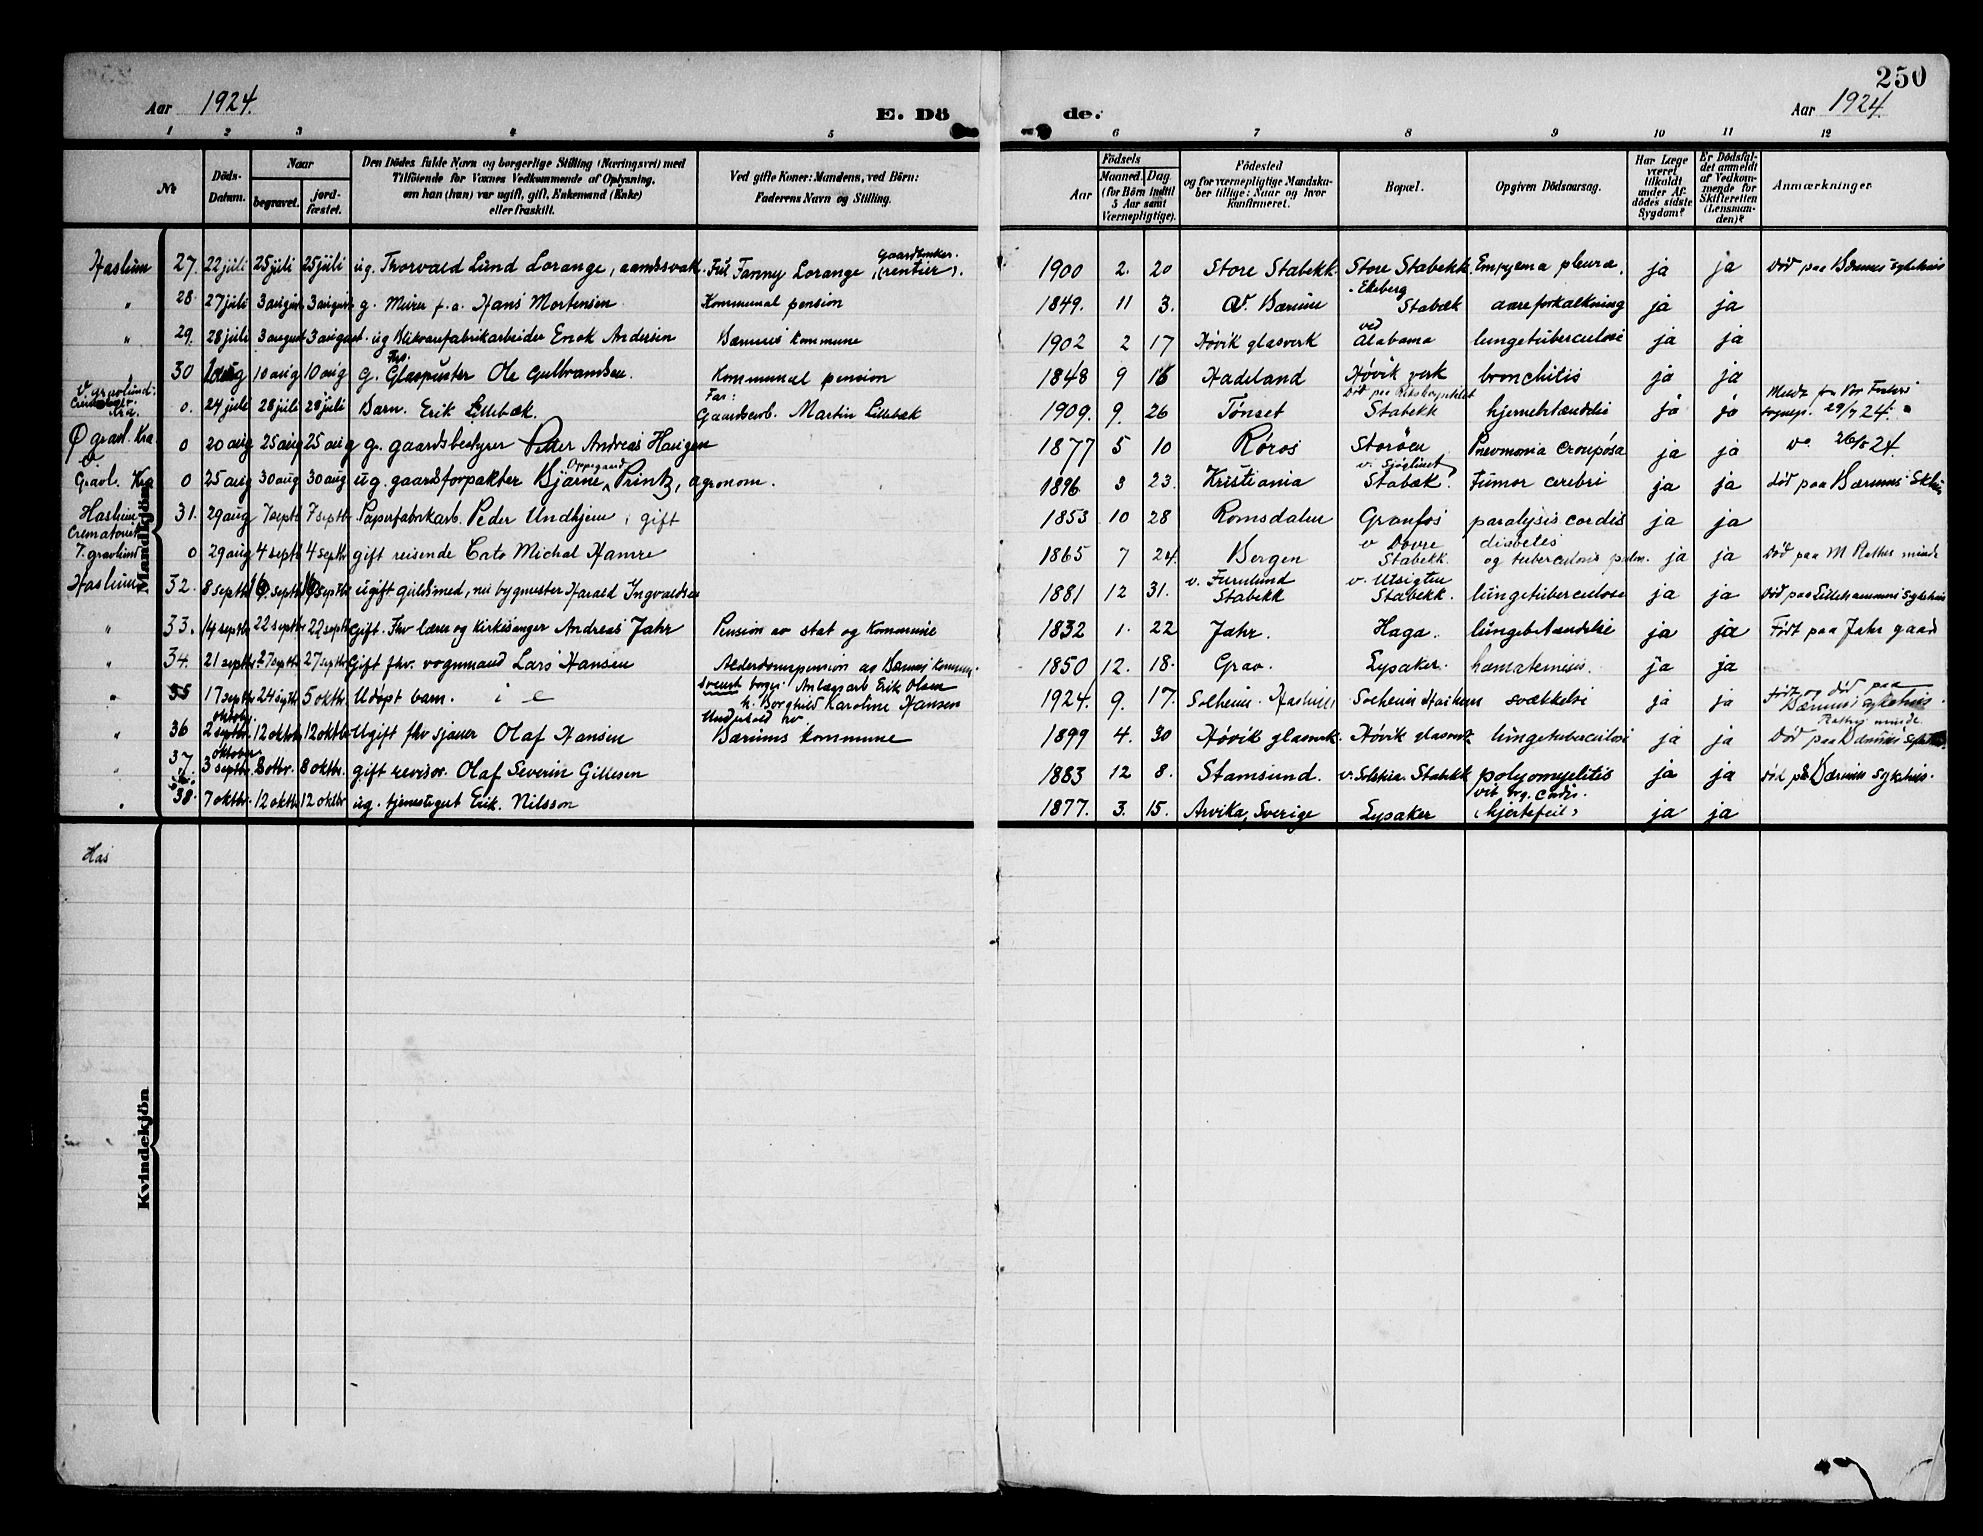 250
Aar 1924.
E. Döde.
Aar 1924.
1 2 3 4 5 6 7 8 9 10 11 12
№
Döds-Datum.
Naar
begravet.
jordfæstet.
Den Dödes fulde Navn og borgerlige Stilling (Næringsvei) med
Tilföiende for Voxnes Vedkommende af Oplysning,
om han (hun) var ugift, gift, Enkemand (Enke)
eller fraskilt.
Ved gifte Koner: Mandens, ved Börn:
Faderens Navn og Stilling.
Födsels
Aar
Maaned. Dag.
(for Börn indtil
5 Aar samt
Værnepligtige).
Födested
og for værnepligtige Mandska-
ber tillige: Naar og hvor
konfirmeret.
Bopæl.
Opgiven Dödsaarsag.
Har Læge
været
tilkaldt
under Af-
dödes sidste
Sygdom?
Er Dödsfal-
det anmeldt
af Vedkom-
mende for
Skifteretten
(Lensman-
den)?
Anmærkninger
Mandkjön.
Haslum 27. 22 juli 25 juli 25 juli ug. Thorvald Lund Lorange, Frl Fanny Lorange Gaardbruker (rentier). 1900 2. 20 Store Stabekk. Store Stabekk Empyema pleura, ja ja Död paa Bærums sykehus
" 28. 27 juli 3 august 3 august g. Murer f.a. Hans Mortensen Kommunal pension 1849. 11 3. V. Bærum Ekeberg Stabæk aareforkalkning ja ja
" 29. 28 juli 3 august 3 august ug Blikvarefabrikarbeider Enok Andersen Bærums kommune 1902 2 17 Hövik glasverk ved Alabama lungetuberculose ja ja
" 30 10 aug 10 aug g. Fhv. Glaspuster Ole Gulbrandsen. Kommunal pension 1848 9 16 Hadeland Hövik verk bronchitis ja ja
V. gravlund: Kra. 0. 24 juli 28 juli 28 juli Barn. Erik Lillebæk. Far: Gaardsarb. Martin Lillebæk 1909. 9. 26 Tönset Död paa Rikshospitalet Stabekk hjernebetændelse ja ja 29/7 24.
Ö gravl. Kra. 0 20 aug 25 aug 25 aug g. gaardsbestyrer Peder Andreas Haugen 1877 5 10 Röros Storöen Pnevmonia croupösa ja ja 26/8 24.
Ö. Gravl. Kra 0 25 aug 30 aug 30 aug ug. gaardforpakter Bjarne Oppegaard Printz, agronom. 1896 3 23. Kristiania v. Sjöglimt Stabæk. Tumor cerebri ja ja död paa Bærums Sykhus
Haslum 31. 29 aug 7 septb 7 septb Papirfabrikarb. Peder Undhjem, gift 1853 10 28 Romsdalen Granfos paralysis cordis ja ja
Crematoriet V. gravlund 0 29 aug 4 septb 4 septb gift reisende Cato Michal Hamre 1865 7 24. Bergen v Dovre Stabekk. diabetes og tuberculosis pulm. ja ja Död paa M Rathes minde
Haslum 32. 8 septb ugift guldsmed, nu bygmester Harald Ingvaldsen 1881 12 31. v. Furulund Stabekk v. Utsigten Stabekk. lungetuberculose ja ja Död paa Lillehammers sykehus
" 33. 14 septb 22 septb 22 septb Gift. Fhv lærer og kirkesanger Andreas Jahr Pension av stat og kommune 1832 1. 22 Jahr. Haga. lungebetændelse ja ja Födt paa Jahr gaard
" 34. 21 septb 27 septb 27 septb Gift fhv. vognmand Lars Hansen Alderdomspension av Bærums kommune. 1850 12. 18. Grav. Lysaker. hæmatemisis. ja ja
" 35 17 septb 24 septb 5 oktbr Udöpt barn. svensk borger Anlægsarb Erik Olsen h. Borghild Karoline Hansen 1924. 9. 17. Solheim. Haslum Solheim Haslum svækkelse ja ja födt og död paa Bærums sykehus.
" 36 oktober 2 septb 12 oktbr 12 oktbr Ugift fhv sjauer Olaf Hansen Underhold av Bærums kommune 1899 4. 30 Hövik glasverk. Hövik glasverk lungetuberculose ja ja Död paa Bærums sykehus
" 37. oktober 3 septb 8 oktbr. 8 oktbr. gift revisor. Olaf Severin Gillesen 1883 12 8. Stamsund. v. Stabekk polyomyelitis ja ja död på Bærums sykehus.
" 38. 7 oktbr. 12 oktbr 12 oktbr ug. tjenestegut Erik. Nilsson 1877. 3. 15. Arvika, Sverige Lysaker vit. org. cordis. (hjertefeil) ja ja
Has
Kvindekjön